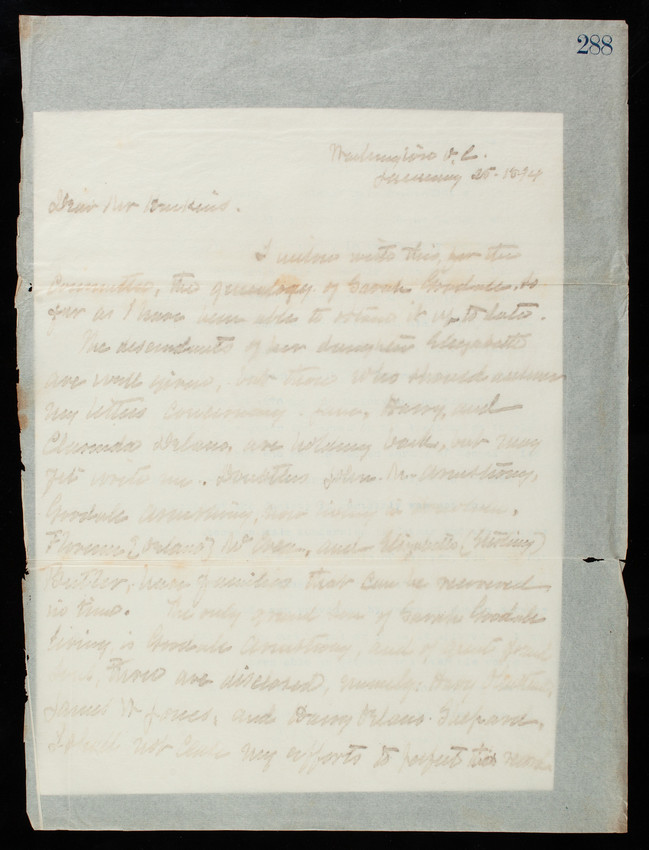 288
Washington D.C.
January 25- 1894
Dear Mr
I inclose with this, for the
Committee, the genealogy of Sarah Goodale, so
far as I have been able to obtain it up to date.
The descendants of her daughter Elizabeth
are well given, but those who should answer
my letters concerning Jane, Darcy, and
Delano, are holding back, but may
yet write me. Doubtless John M. Armstrong,
Goodale Armstrong, now living in
Florence (Delano) and Elizabeth
Butler, have families that can be recovered
in time. The only grand son of Sarah Goodale
living, is Goodale Armstrong, and of great grand
three are deceased, namely: Darcy
James W Jones, and Darcy Delano Shepard.
I shall not cease my efforts to perfect this